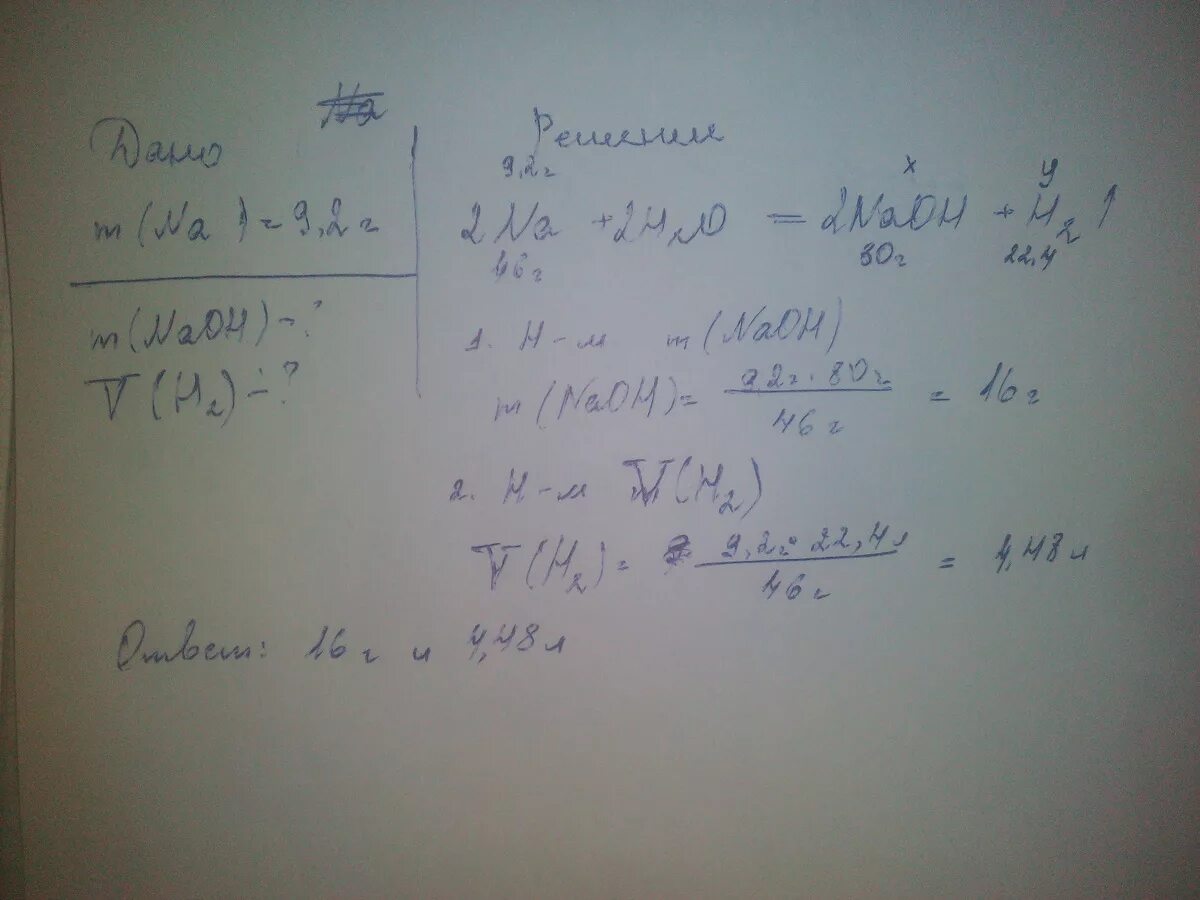 Дано
m(Na)=9,2г
m(NaOH)-?
V(H2)-?
Решение
9,2г x y
2Na + 2H2O = 2NaOH + H2↑
46г 80г 22,4
1. Н-м m(NaOH)
m(NaOH)= 9,2г·80г / 46г = 16г
2. Н-м V(H2)
V(H2)= 9,2г·22,4л / 46г = 4,48л
Ответ: 16г и 4,48л